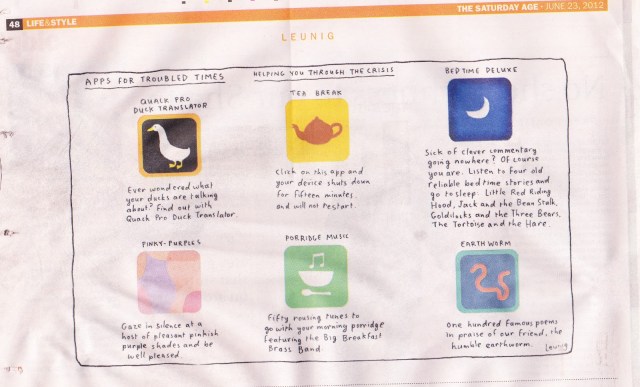 48 LIFE&STYLE
THE SATURDAY AGE • JUNE 23, 2012
LEUNIG
APPS FOR TROUBLED TIMES
HELPING YOU THROUGH THE CRISIS
QUACK PRO
DUCK TRANSLATOR
Ever wondered what
your ducks are talking
about? Find out with
Quack Pro Duck Translator
TEA BREAK
Click on this app and
your device shuts down
for fifteen minutes
and will not restart.
BEDTIME DELUXE
Sick of clever commentary
going nowhere? Of course
you are. Listen to four old
reliable bedtime stories and
go to sleep. Little Red Riding
Hood, Jack and the Bean Stalk,
Goldilocks and the Three Bears,
The Tortoise and the Hare.
PINKY-PURPLES
Gaze in silence at a
host of pleasant pinkish
purple shades and be
well pleased.
PORRIDGE MUSIC
Fifty rousing tunes to
go with your morning porridge
featuring the Big Breakfast
Brass Band
EARTH WORM
One hundred famous poems
in praise of our friend, the
humble earthworm.
Leunig